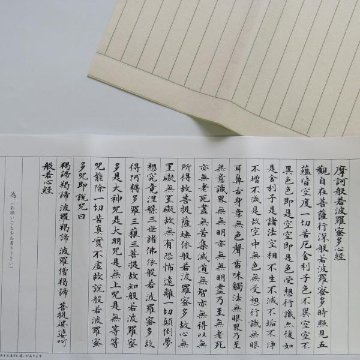 摩訶般若波羅蜜多心経
觀自在菩薩行深般若波羅蜜多時照見五
蘊皆空度一切苦厄舎利子色不異空空不
異色色即是空空即是色受想行識亦復如
是舎利子是諸法空相不生不滅不垢不浄
不増不減是故空中無色無受想行識無眼
耳鼻舌身意無色聲香味觸法無眼界乃至
無意識界無無明亦無無明盡乃至無老死
亦無老死盡無苦集滅道無智亦無得以無
所得故菩提薩埵依般若波羅蜜多故心無
罣礙無罣礙故無有恐怖遠離一切顛倒夢
想究竟涅槃三世諸佛依般若波羅蜜多故
得阿耨多羅三藐三菩提故知般若波羅蜜
多是大神呪是大明呪是無上呪是無等等
呪能除一切苦真實不虚故説般若波羅蜜
多呪即説呪曰
羯諦羯諦 波羅羯諦 波羅僧羯諦 菩提娑婆訶
般若心経
為